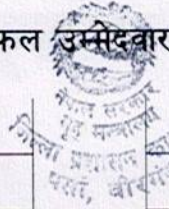 फल उम्मेदवार
नेपाल सरकार
गृह मन्त्रालय
जिल्ला प्रशासन
पर्सा, वीरगं